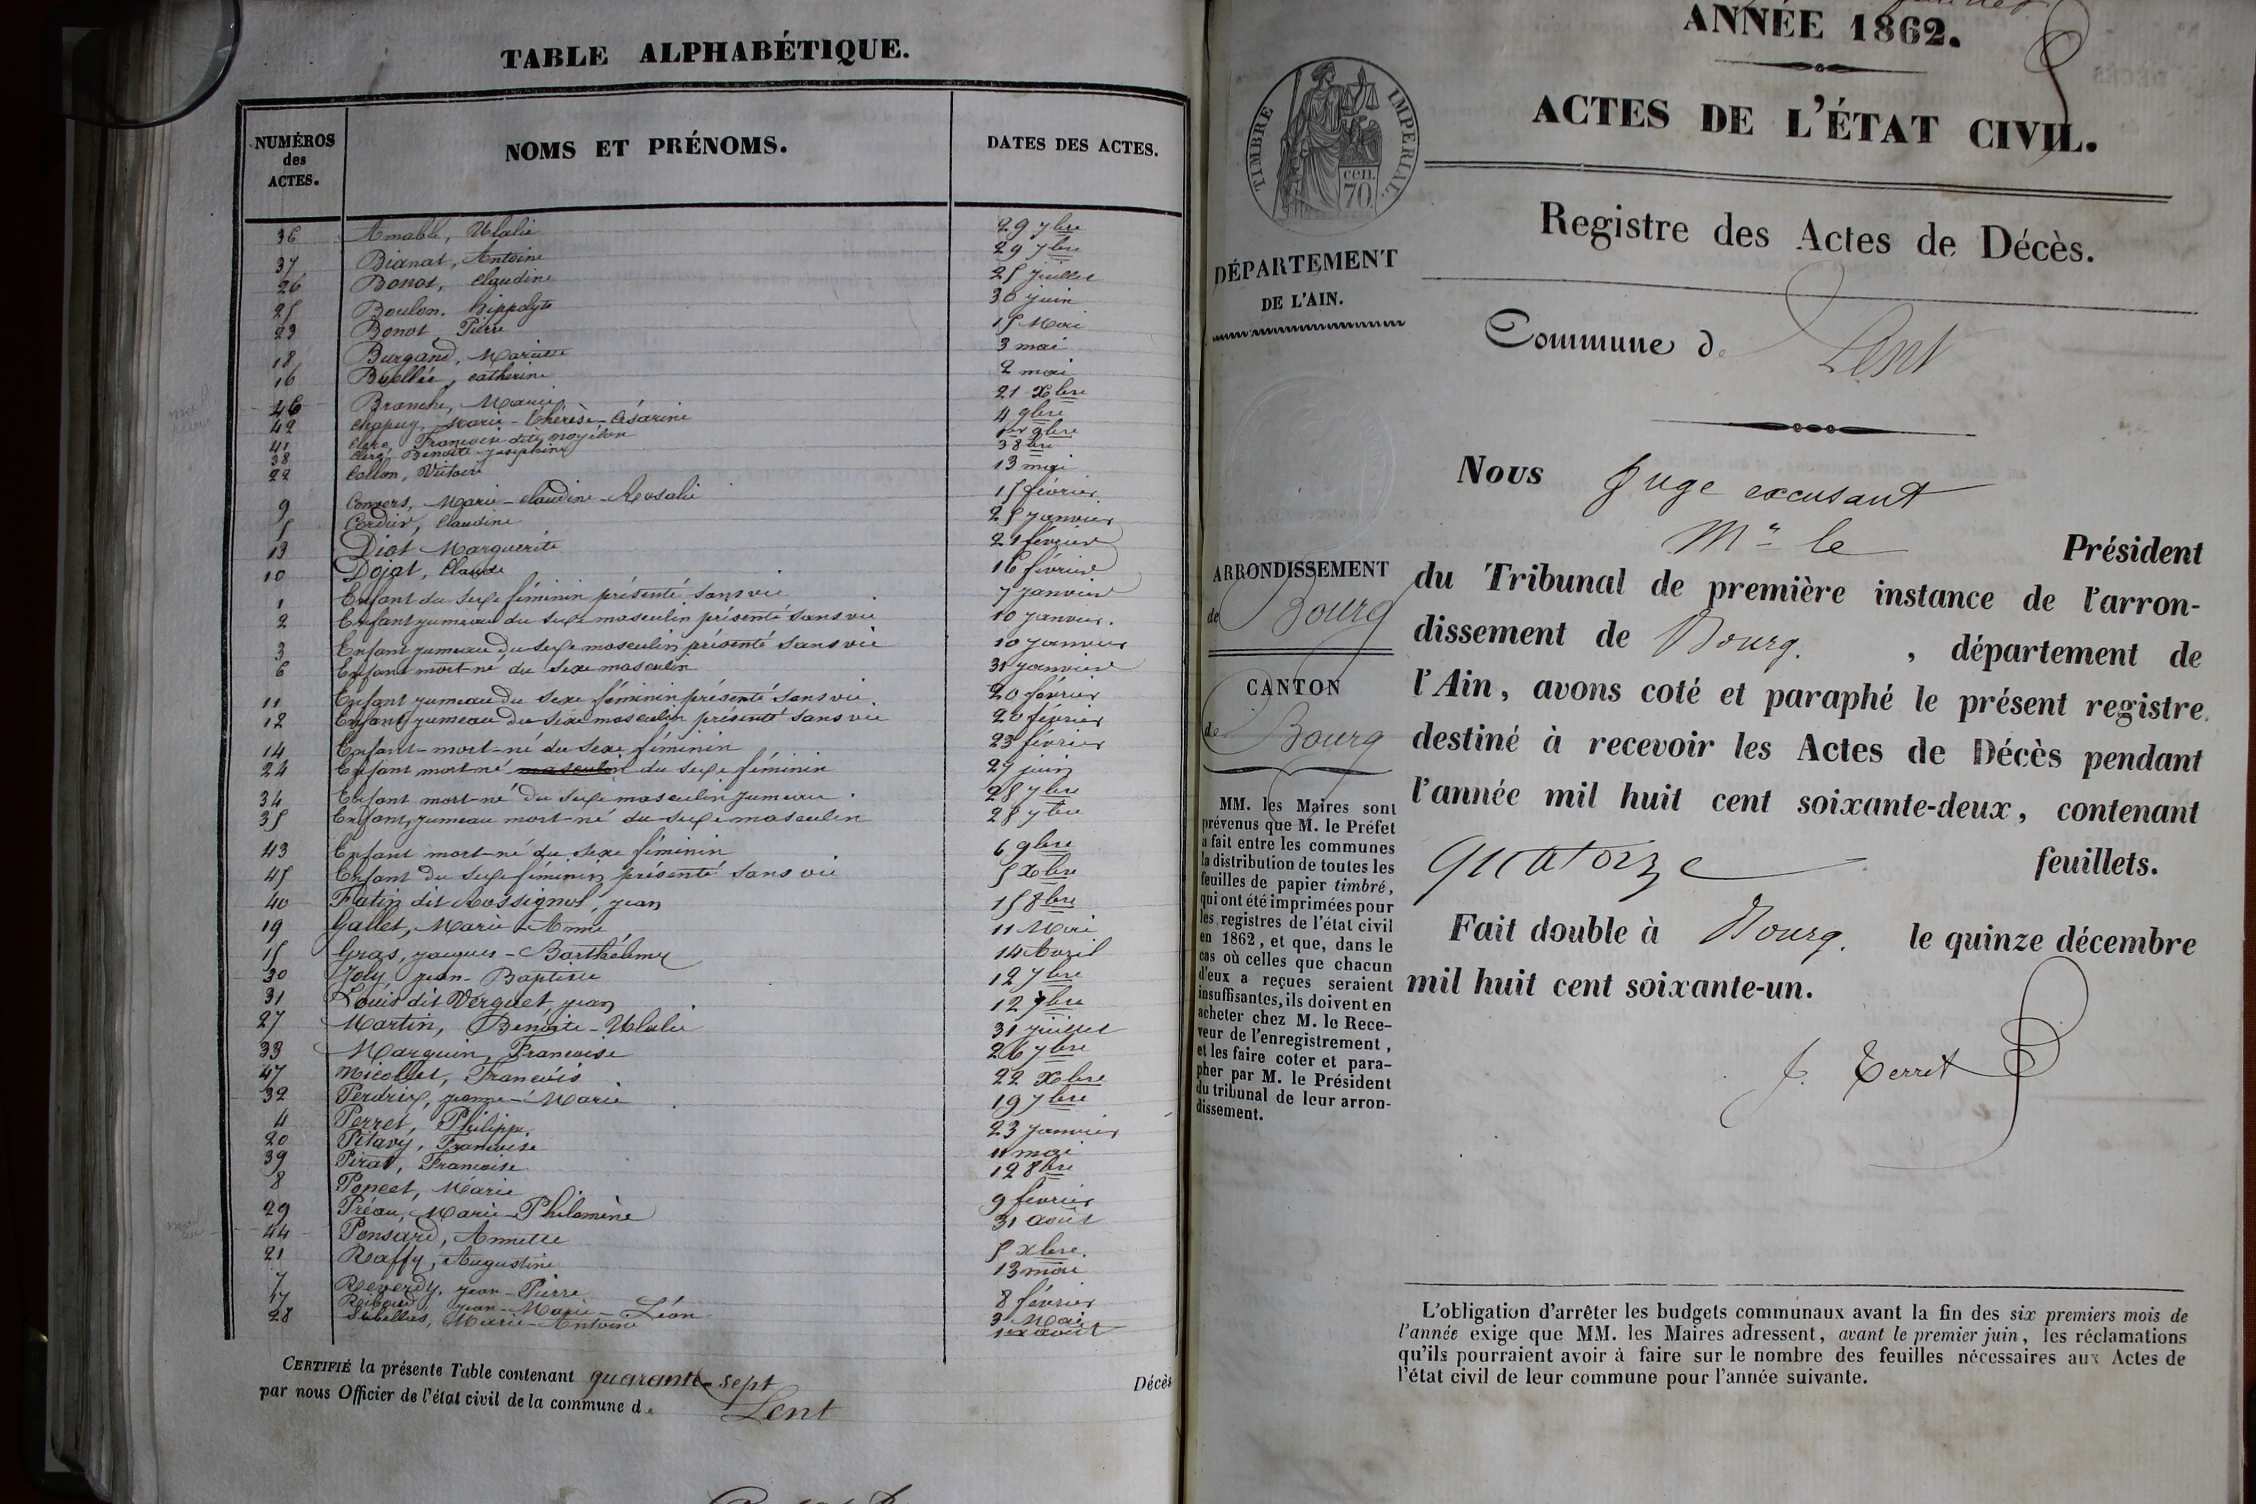 TABLE ALPHABÉTIQUE.
NUMÉROS des ACTES. NOMS ET PRÉNOMS. DATES DES ACTES.
36 Amable, Ulalie 29 7bre
37 Bianat, Antoine 29 7bre
26 Bonot, Claudine 25 juillet
25 Boulon. hippolyte 30 juin
23 Bonot Pierre 15 Mai
18 Burgand, Mariette 3 mai
16 Buellée, catherine 2 mai
46 Branche, Marie 21 Xbre
42 Chapuy, Marie-Thérèse-Césarine 4 9bre
41 Clerc, Francoise dite 1er 9bre
38 Clerc, Benoite Josephine 3 8bre
22 Collon, Victoire 13 mai
9 Convers, Marie-claudine-Rosalie 15 février
5 Cordier, Claudine 25 janvier
13 Diot Marguerite 21 février
10 Dojat, Claude 16 février
1 Enfant du sexe féminin présenté sans vie 7 janvier
2 Enfant jumeau du sexe masculin présenté sans vie 10 janvier.
3 Enfant jumeau du sexe masculin présenté sans vie 10 janvier
6 Enfant mort-né du sexe masculin 31 janvier
11 Enfant jumeau du sexe féminin présenté sans vie. 20 février
12 Enfant jumeau du sexe masculin présenté sans vie 20 février
14 Enfant-mort-né du sexe féminin 23 février
24 Enfant mort-né masculin du sexe féminin 27 juin
34 Enfant mort-né du sexe masculin jumeau. 28 7bre
35 Enfant, jumeau mort-né du sexe masculin 28 7bre
43 Enfant mort-né du sexe féminin 6 9bre
45 Enfant du sexe féminin présenté sans vie 5 Xbre
40 Flatin dit Rossignol, jean 15 8bre
19 Gallet, Marie Anne 11 Mai
15 Gras, jacques-Barthélemy 14 Avril
30 Joly, jean-Baptiste 12 7bre
31 Louis dit Verguet, jean 12 7bre
27 Martin, Benoite-Ulalie 31 juillet
33 Marquin, Francoise 26 7bre
47 Nicollet, Francois 22 Xbre
32 Perdrix, jeanne-Marie 19 7bre
4 Perret, Philippe. 23 janvier
20 Pitavy, Francoise 11 mai
39 Pirat, Francoise 12 8bre
8 Poncet, Marie 9 février
29 Préau, Marie-Philomène 31 août
44 Ponsard, Annette 5 xbre.
21 Raffy, Augustine 13 mai
7 Reverdy, jean-Pierre 8 février
17 Reiboud, jean-Marie-Léon 3 Mai
28 Sibellas, Marie-Antoine 1er août
CERTIFIÉ la présente Table contenant quarante-sept Décès
par nous Officier de l'état civil de la commune de Lent
ANNÉE 1862.
ACTES DE L'ÉTAT CIVIL.
TIMBRE IMPERIAL.
cen.
70.
Registre des Actes de Décès.
DÉPARTEMENT
DE L'AIN.
Commune de Lent
Nous Juge excusant
Mr le Président
ARRONDISSEMENT
de Bourg
CANTON
de Bourg
du Tribunal de première instance de l'arron-
dissement de Bourg. , département de
l'Ain, avons coté et paraphé le présent registre
destiné à recevoir les Actes de Décès pendant
l'année mil huit cent soixante-deux, contenant
quatorze feuillets.
Fait double à Bourg. le quinze décembre
mil huit cent soixante-un.
J. Terret
MM. les Maires sont
prévenus que M. le Préfet
a fait entre les communes
la distribution de toutes les
feuilles de papier timbré,
qui ont été imprimées pour
les registres de l'état civil
en 1862, et que, dans le
cas où celles que chacun
d'eux a reçues seraient
insuffisantes, ils doivent en
acheter chez M. le Rece-
veur de l'enregistrement,
et les faire coter et para-
pher par M. le Président
du tribunal de leur arron-
dissement.
L'obligation d'arrêter les budgets communaux avant la fin des six premiers mois de
l'année exige que MM. les Maires adressent, avant le premier juin, les réclamations
qu'ils pourraient avoir à faire sur le nombre des feuilles nécessaires aux Actes de
l'état civil de leur commune pour l'année suivante.